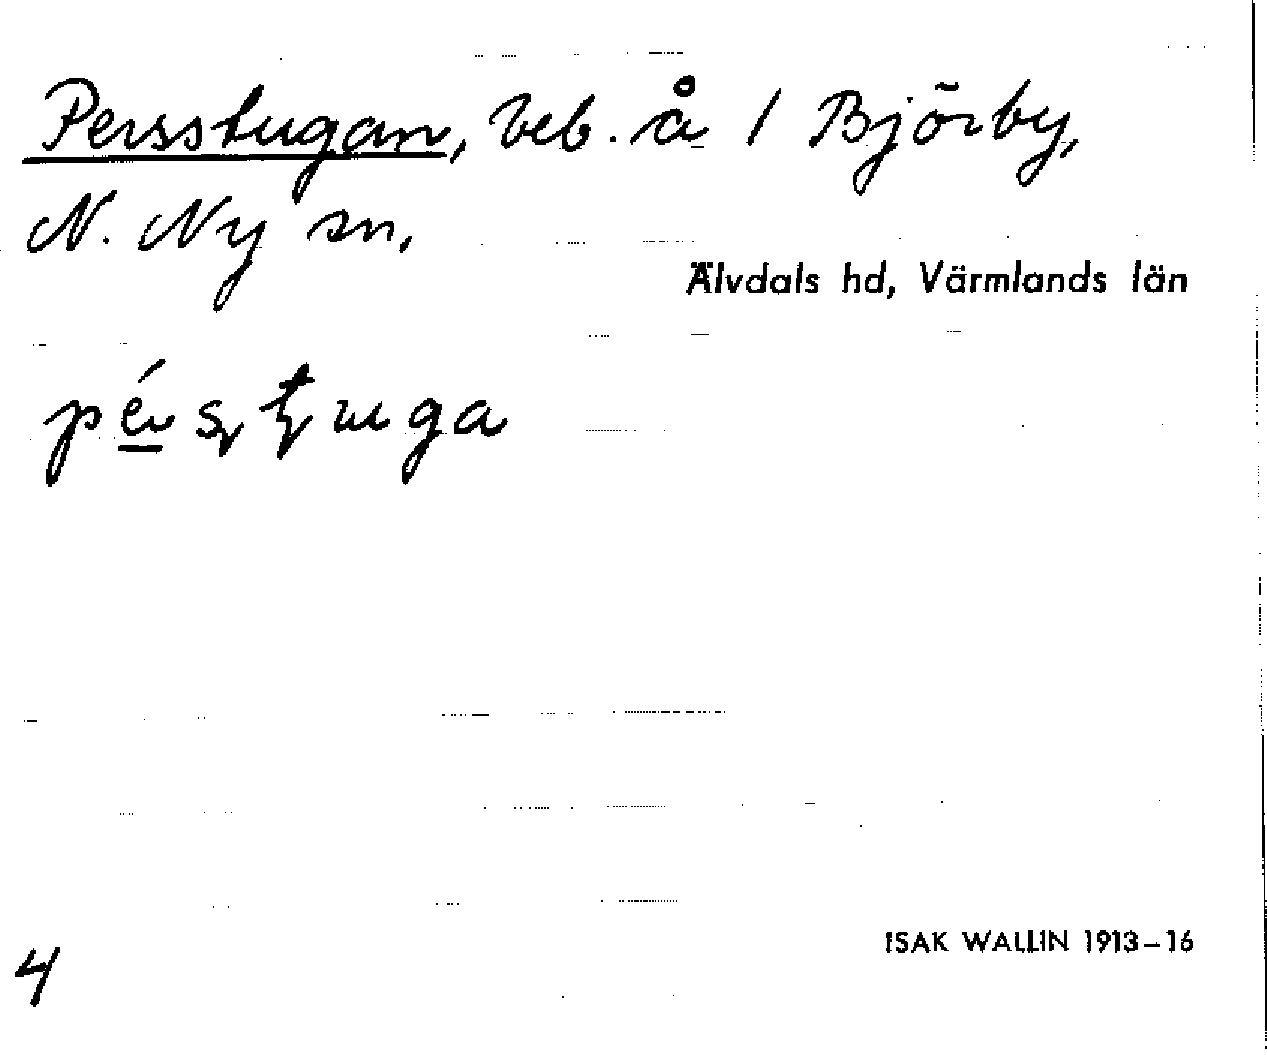 Persstugan, beb. å 1 Björby,
N. Ny sn,
Älvdals hd, Värmlands län
ISAK WALLIN 1913–16
4